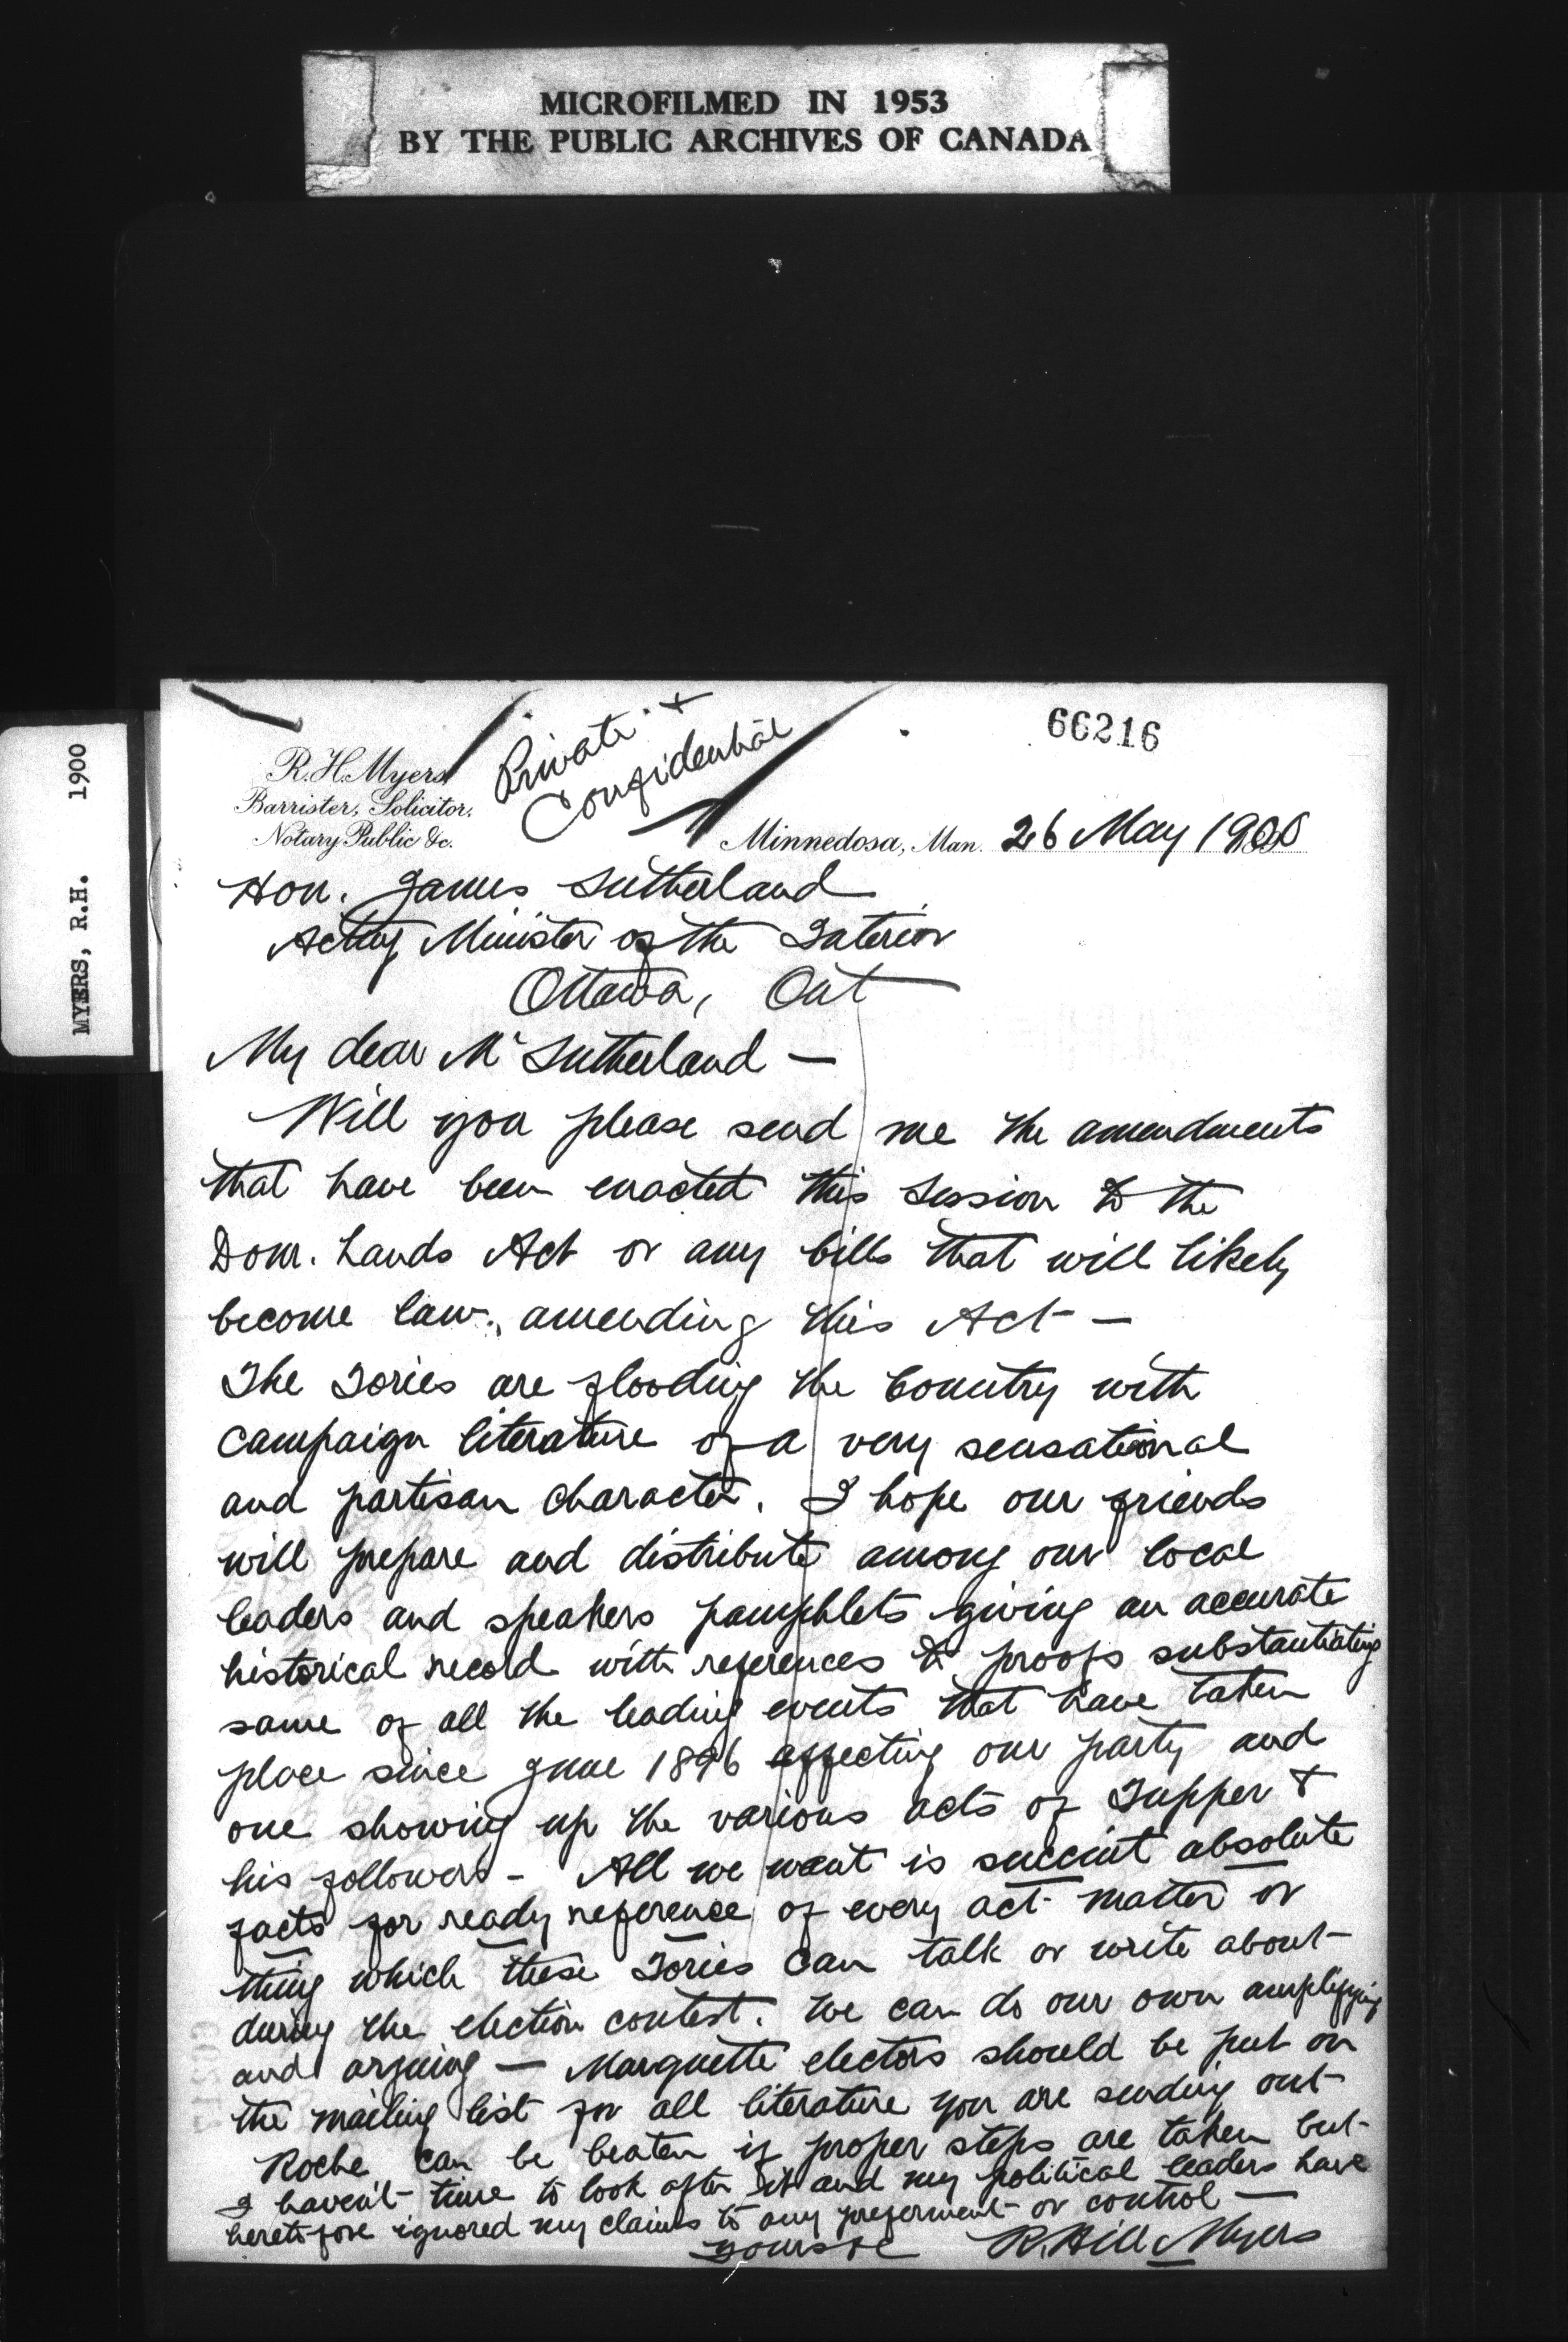 MICROFILMED IN 1953
BY THE PUBLIC ARCHIVES OF CANADA
MYERS, R.H. 1900
66216
Private &
Confidential
R.H. Myers
Barrister, Solicitor,
Notary Public &c.
Minnedosa, Man. 26 May 1900
Hon. James Sutherland
Acting Minister of the Interior
Ottawa, Ont
My dear Mr Sutherland —
Will you please send me the amendments
that have been enacted this session to the
Dom. Lands Act or any bills that will likely
become law, amending this Act —
The Tories are flooding the Country with
campaign literature of a very sensational
and partisan character. I hope our friends
will prepare and distribute among our local
leaders and speakers pamphlets giving an accurate
historical record with references to proofs substantiating
same of all the leading events that have taken
place since June 1896 affecting our party and
one showing up the various acts of Tupper &
his followers - All we want is succint absolute
facts for ready reference of every act matter or
thing which these Tories can talk or write about
during the election contest. We can do our own amplifying
and arguing — Marquette electors should be put on
the mailing list for all literature you are sending out
Roche can be beaten if proper steps are taken but
I haven't time to look after it and my political leaders have
heretofore ignored my claims to any preferment or control —
Yours &c R. Hill Myers